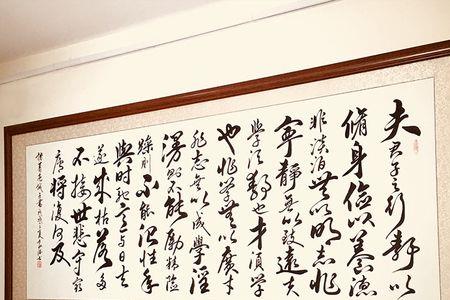 夫君子之行靜以
脩身儉以養德
非淡泊無以明志非
寧靜無以致遠夫
學須靜也才須學
也非學無以廣才
非志無以成學淫
漫則不能勵精險
躁則不能治性年
與時馳意與日去
遂成枯落多
不接世悲守窮
廬將復何及